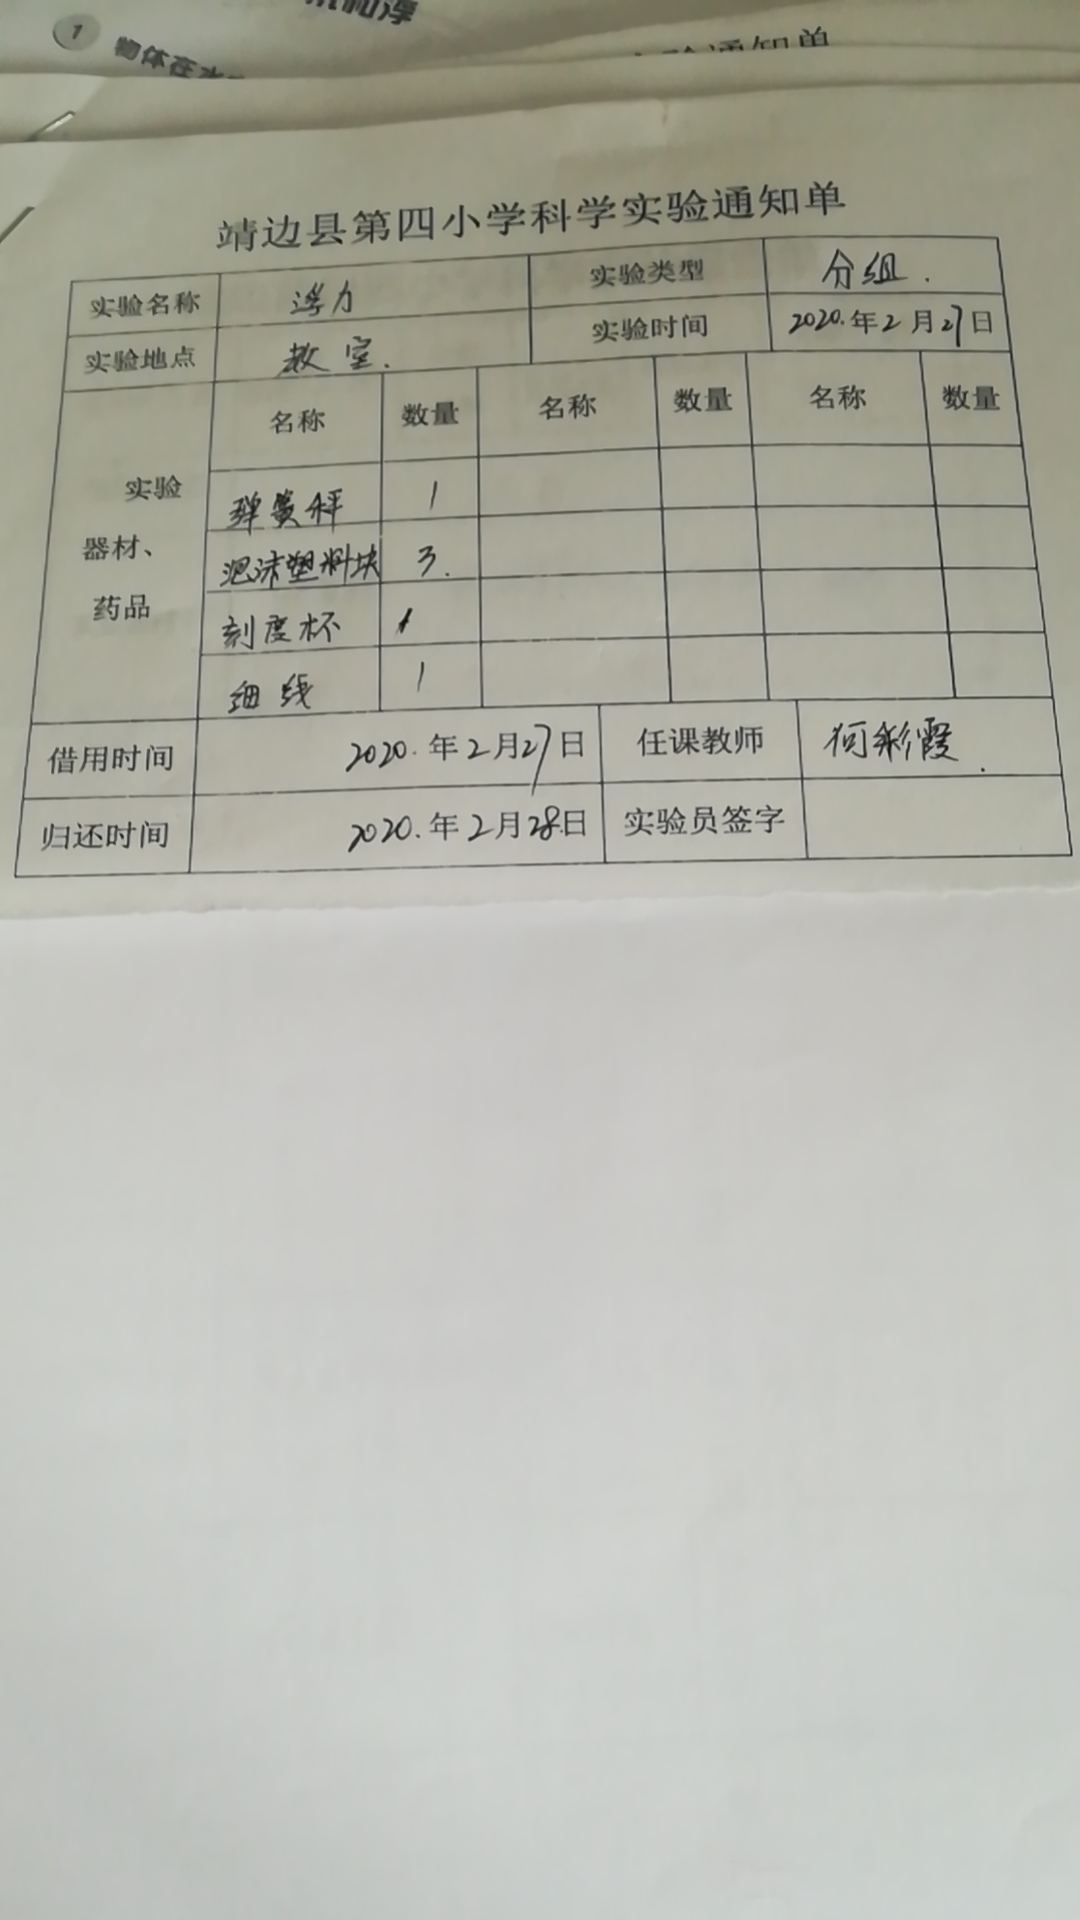 1
物体在水
实验通知单
靖边县第四小学科学实验通知单
实验名称 浮力 实验类型 分组.
实验地点 教室. 实验时间 2020.年2月27日
实验器材、药品 名称 数量 名称 数量 名称 数量
弹簧秤 1
泡沫塑料块 3.
刻度杯 1
细线 1
借用时间 2020.年2月27日 任课教师 何彩霞.
归还时间 2020.年2月28日 实验员签字